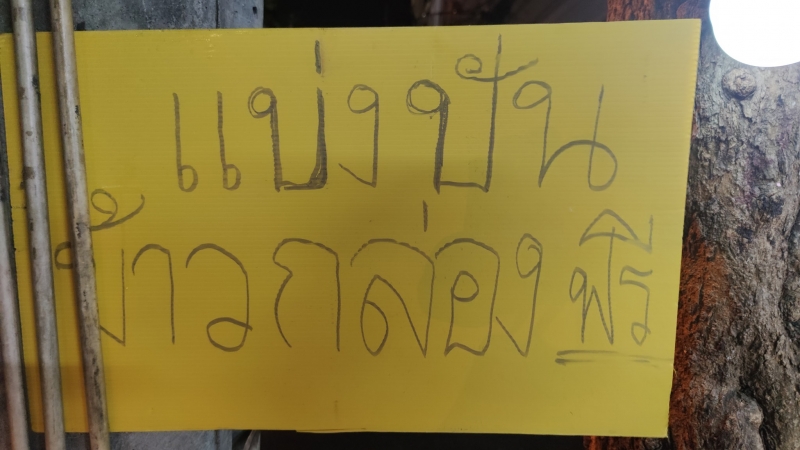 แบ่งปัน
ข้าวกล่องฟรี